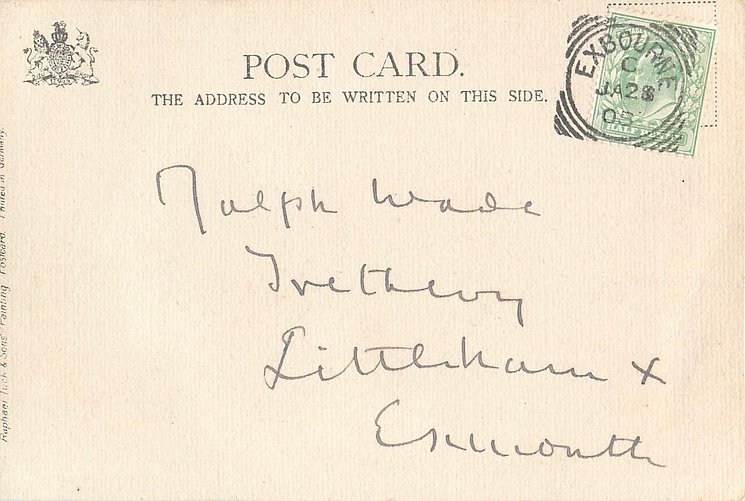 POST CARD.
THE ADDRESS TO BE WRITTEN ON THIS SIDE.
EXBOURNE
C
JA 28
03
Ralph Wade
Trethevy
Littleham X
Exmouth
Raphael Tuck & Sons' Painting Postcard. Printed in Germany.